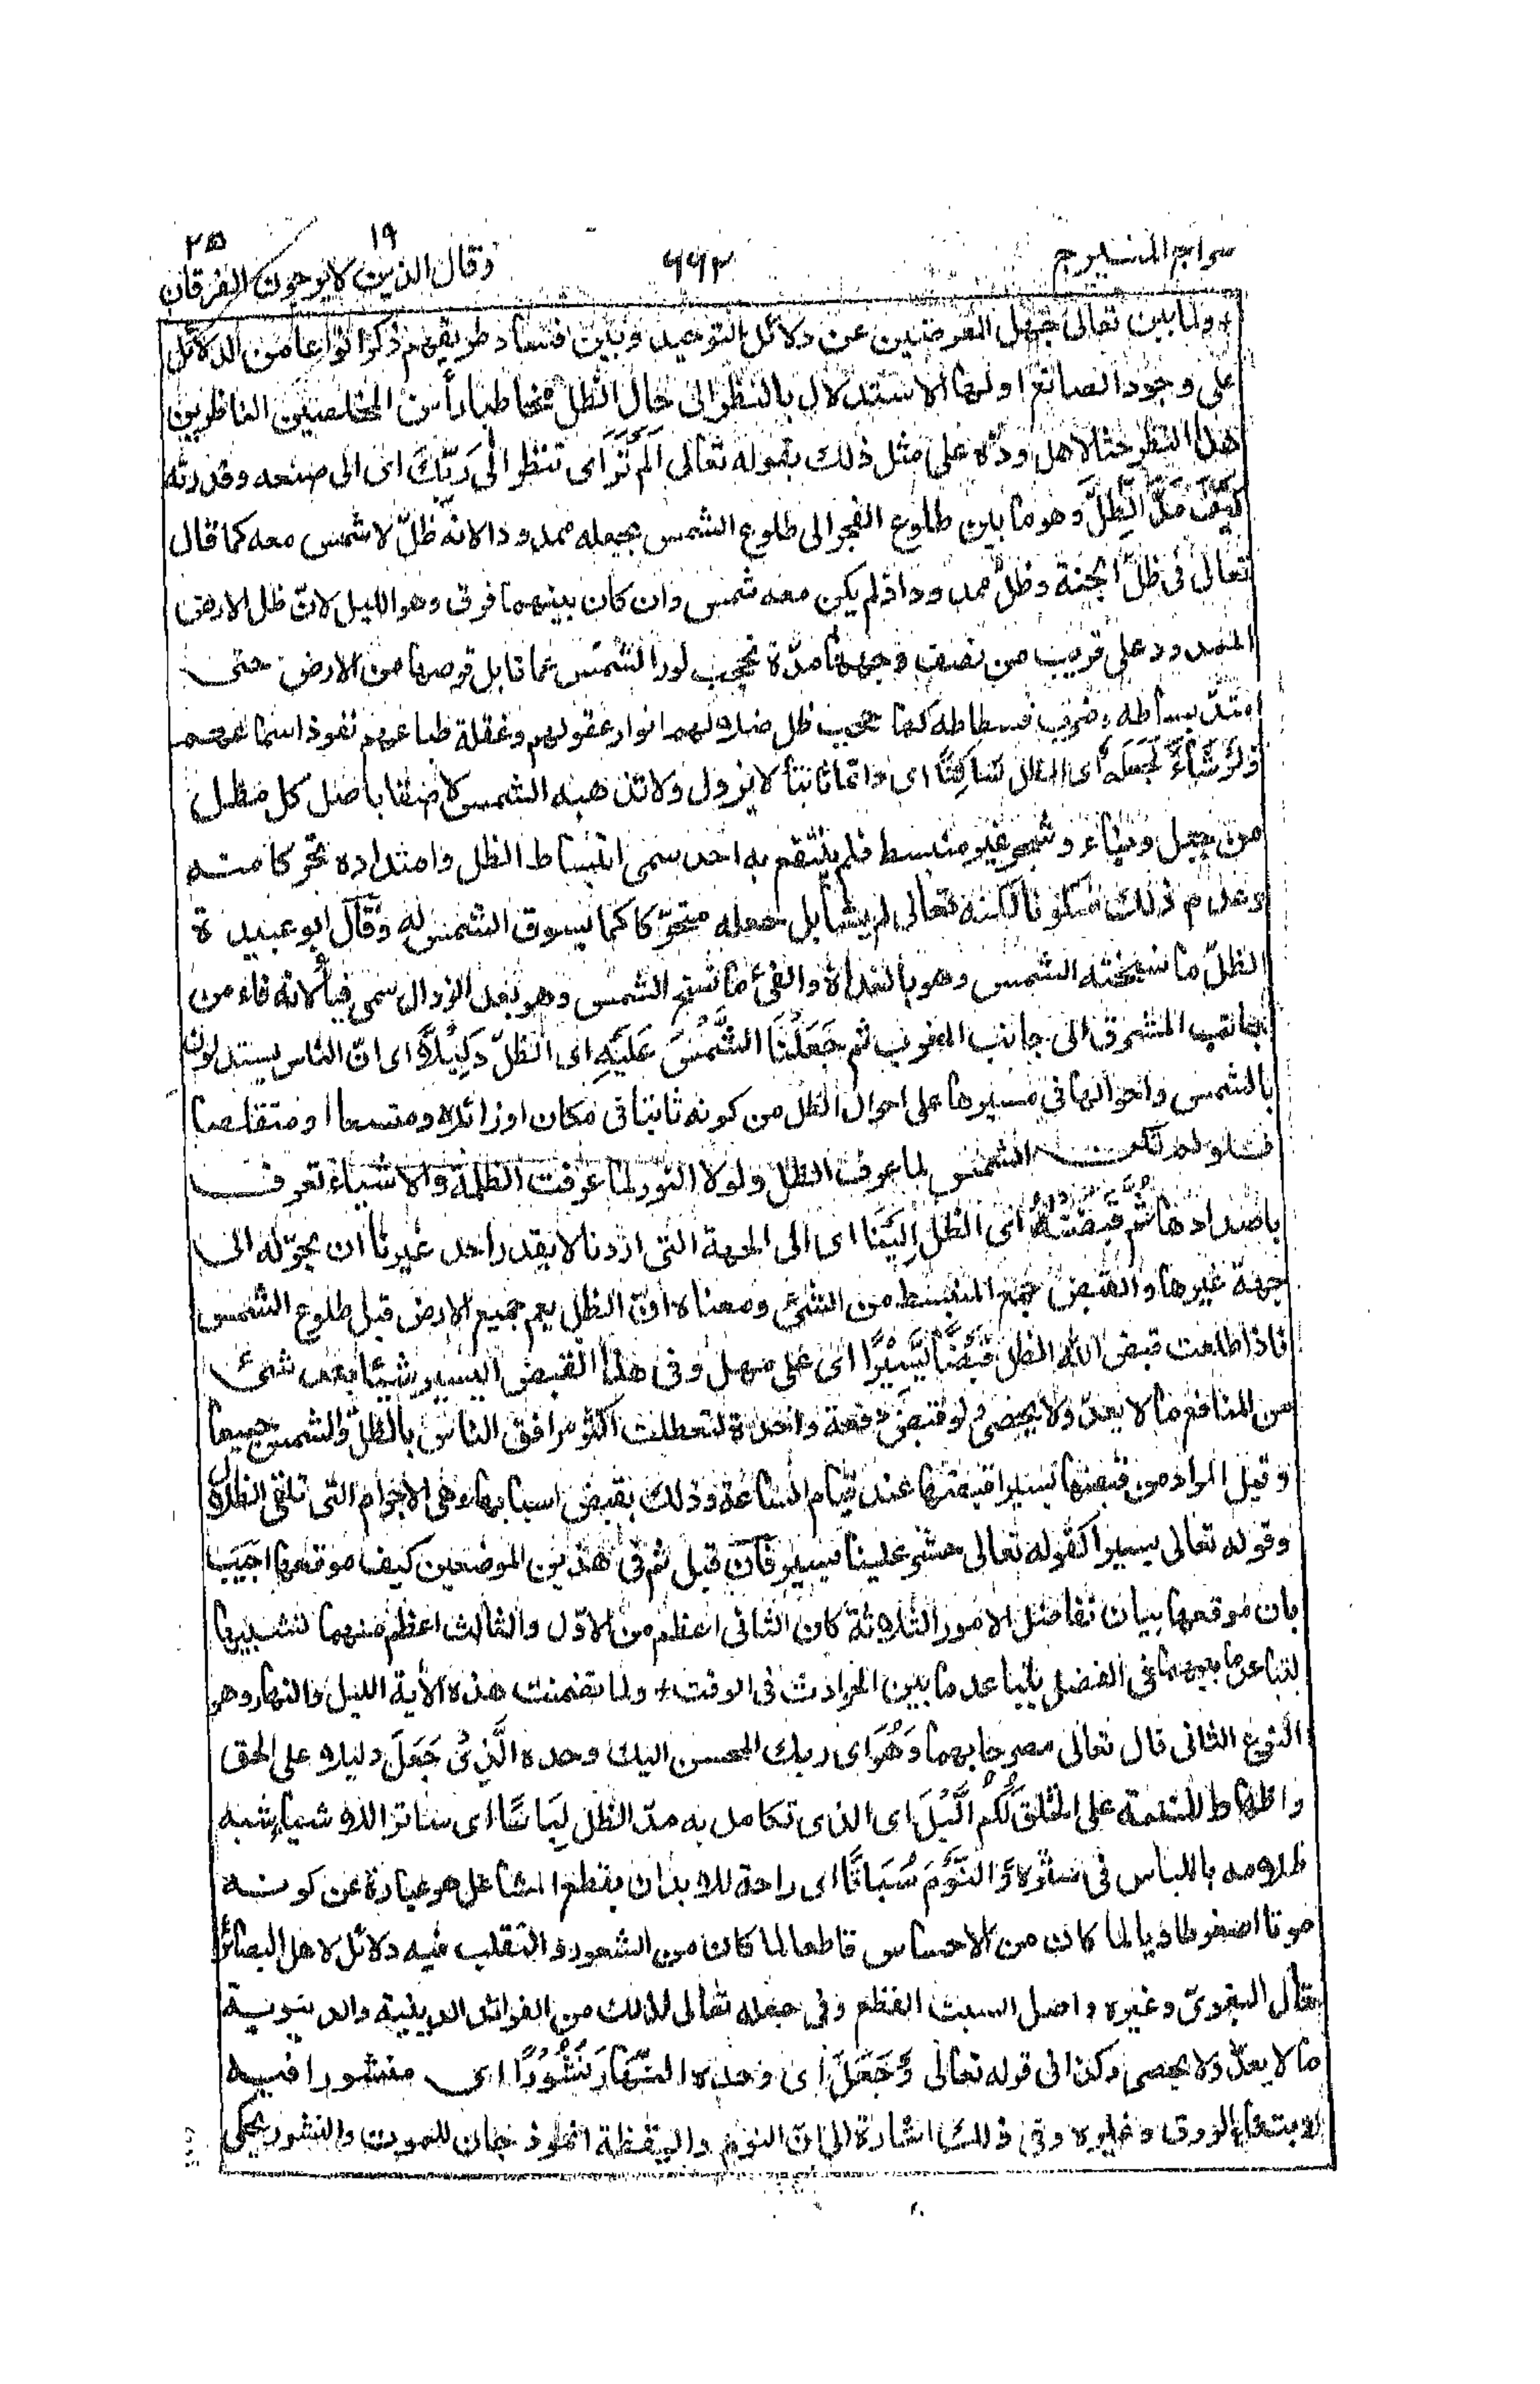 سراج المنير ج
٦٦٢
وقال الذين لا يرجون ١٩
الفرقان ٢٥
+ ولما بين تعالى جهل المعرضين عن دلائل التوحيد وبين فساد طريقهم ذكر انواعا من الدلائل
على وجود الصانع اولها الاستدلال بالنظر الى حال الظل مخاطبا رأس المخلصين الناظرين
هذا النظر حثا لاهل وده على مثل ذلك بقوله تعالى اَلَمْ تَرَ اى تنظر اِلٰى رَبِّكَ اى الى صنعه وقدرته
كَيْفَ مَدَّ الظِّلَّ وهو ما بين طلوع الفجر الى طلوع الشمس جعله ممدودا لانه ظلّ لا شمس معه كما قال
تعالى فى ظلّ الجنة وظلّ ممدود اذ لم يكن معه شمس وان كان بينهما فرق وهو الليل لانّ ظل الارض
الممدود على قريب من نصف وجهها مدّة تحجب نور الشمس عما قابل قرصها من الارض حتى
امتدّ بساطه وضرب فسطاطه كما حجب ظل ضلالهم انوار عقولهم وغفلة طباعهم نفوذ اسماعهم
وَلَوْ شَآءَ لَجَعَلَهٗ اى الظل سَاكِنًا اى دائما ثابتا لا يزول ولا تذهبه الشمس لاصقا باصل كل مظل
من جبل وبناء وشجر غير منبسط فلم ينتفع به احد سمى انبساط الظل وامتداده تحركا منه
وعدم ذلك سكونا لكنه تعالى لم يشأ بل جعله متحرّكا كما يسوق الشمس له وقال ابو عبيدة
الظلّ ما نسخته الشمس وهو بالغداة والفئ ما نسخ الشمس وهو بعد الزوال سمى فيأ لانه فاء من
جانب المشرق الى جانب المغرب ثم جَعَلْنَا الشَّمْسَ عَلَيْهِ اى الظلّ دَلِيْلًا اى انّ الناس يستدلون
بالشمس واحوالها فى مسيرها على احوال الظل من كونه ثابتا فى مكان او زائلا ومتسعا او متقلصا
فلو لم تكن الشمس لما عرف الظل ولولا النور لما عرفت الظلمة والاشياء تعرف
باضدادها ثُمَّ قَبَضْنٰهُ اى الظل اِلَيْنَا اى الى الجهة التى اردنا لا يقدر احد غيرنا ان يحوّله الى
جهة غيرها والقبض جمع المنبسط من الشئ ومعناه ان الظل يعم جميع الارض قبل طلوع الشمس
فاذا طلعت قبض الله الظل قَبْضًا يَّسِيْرًا اى على مهل وفى هذا القبض اليسير شيئا بعد شئ
من المنافع ما لا يعدّ ولا يحصى ولو قبض دفعة واحدة لتعطلت اكثر مرافق الناس بالظلّ والشمس جميعا
وقيل المراد من قبضها يسيرا قبضها عند قيام الساعة وذلك بقبض اسبابها وهى الاجرام التى تلقى الظلال
وقوله تعالى يسيرا كقوله تعالى حشر علينا يسير فان قيل ثم فى هذين الموضعين كيف موقعها اجيب
بان موقعها بيان تفاضل الامور الثلاثة كان الثانى اعظم من الاوّل والثالث اعظم منهما تشبيها
لتباعد ما بينهما فى الفضل بتباعد ما بين الحوادث فى الوقت + ولما تضمنت هذه الاٰية الليل والنهار وهو
النوع الثانى قال تعالى مصرحا بهما وَهُوَ اى ربك المحسن اليك وحده الَّذِىْ جَعَلَ دليلا على الحق
واظهارا للنعمة على الخلق لَكُمُ الَّيْلَ اى الذى تكامل به مدّ الظل لِبَاسًا اى ساترا للاشياء شبه
ظلامه باللباس فى ستره وَّالنَّوْمَ سُبَاتًا اى راحة للابدان بقطع المشاغل هو عبارة عن كونه
موتا اصغر طاويا لما كان من الاحساس قاطعا لما كان من الشعور والتقلب فيه دلائل لاهل البصائر
قال البغوىّ وغيره واصل السبت القطع وفى جعله تعالى لذلك من الفوائد الدينية والدنيوية
ما لا يعدّ ولا يحصى وكذا فى قوله تعالى وَّجَعَلَ اى وحده النَّهَارَ نُشُوْرًا اى منشورا فيه
لابتغاء الرزق وغيره وفى ذلك اشارة الى انّ النوم واليقظة انموذجان للموت والنشور يحكى